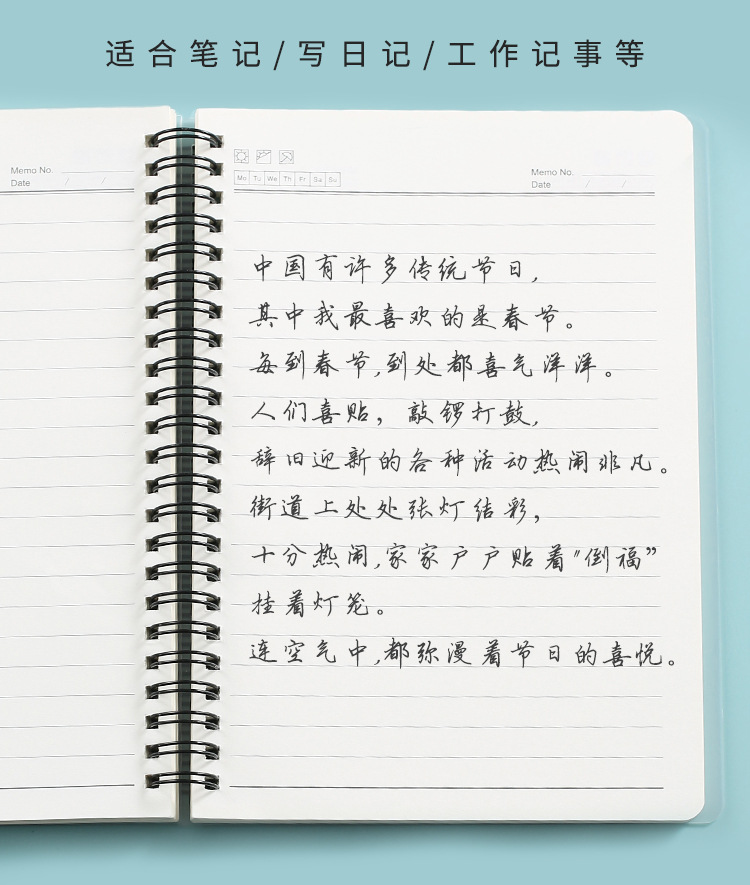 适合笔记/写日记/工作记事等
Memo No.
Date / /
Mo Tu We Th Fr Sa Su
Memo No.
Date / /
中国有许多传统节日,
其中我最喜欢的是春节。
每到春节,到处都喜气洋洋。
人们喜贴,敲锣打鼓,
辞旧迎新的各种活动热闹非凡。
街道上处处张灯结彩,
十分热闹,家家户户贴着"倒福”
挂着灯笼。
连空气中,都弥漫着节日的喜悦。